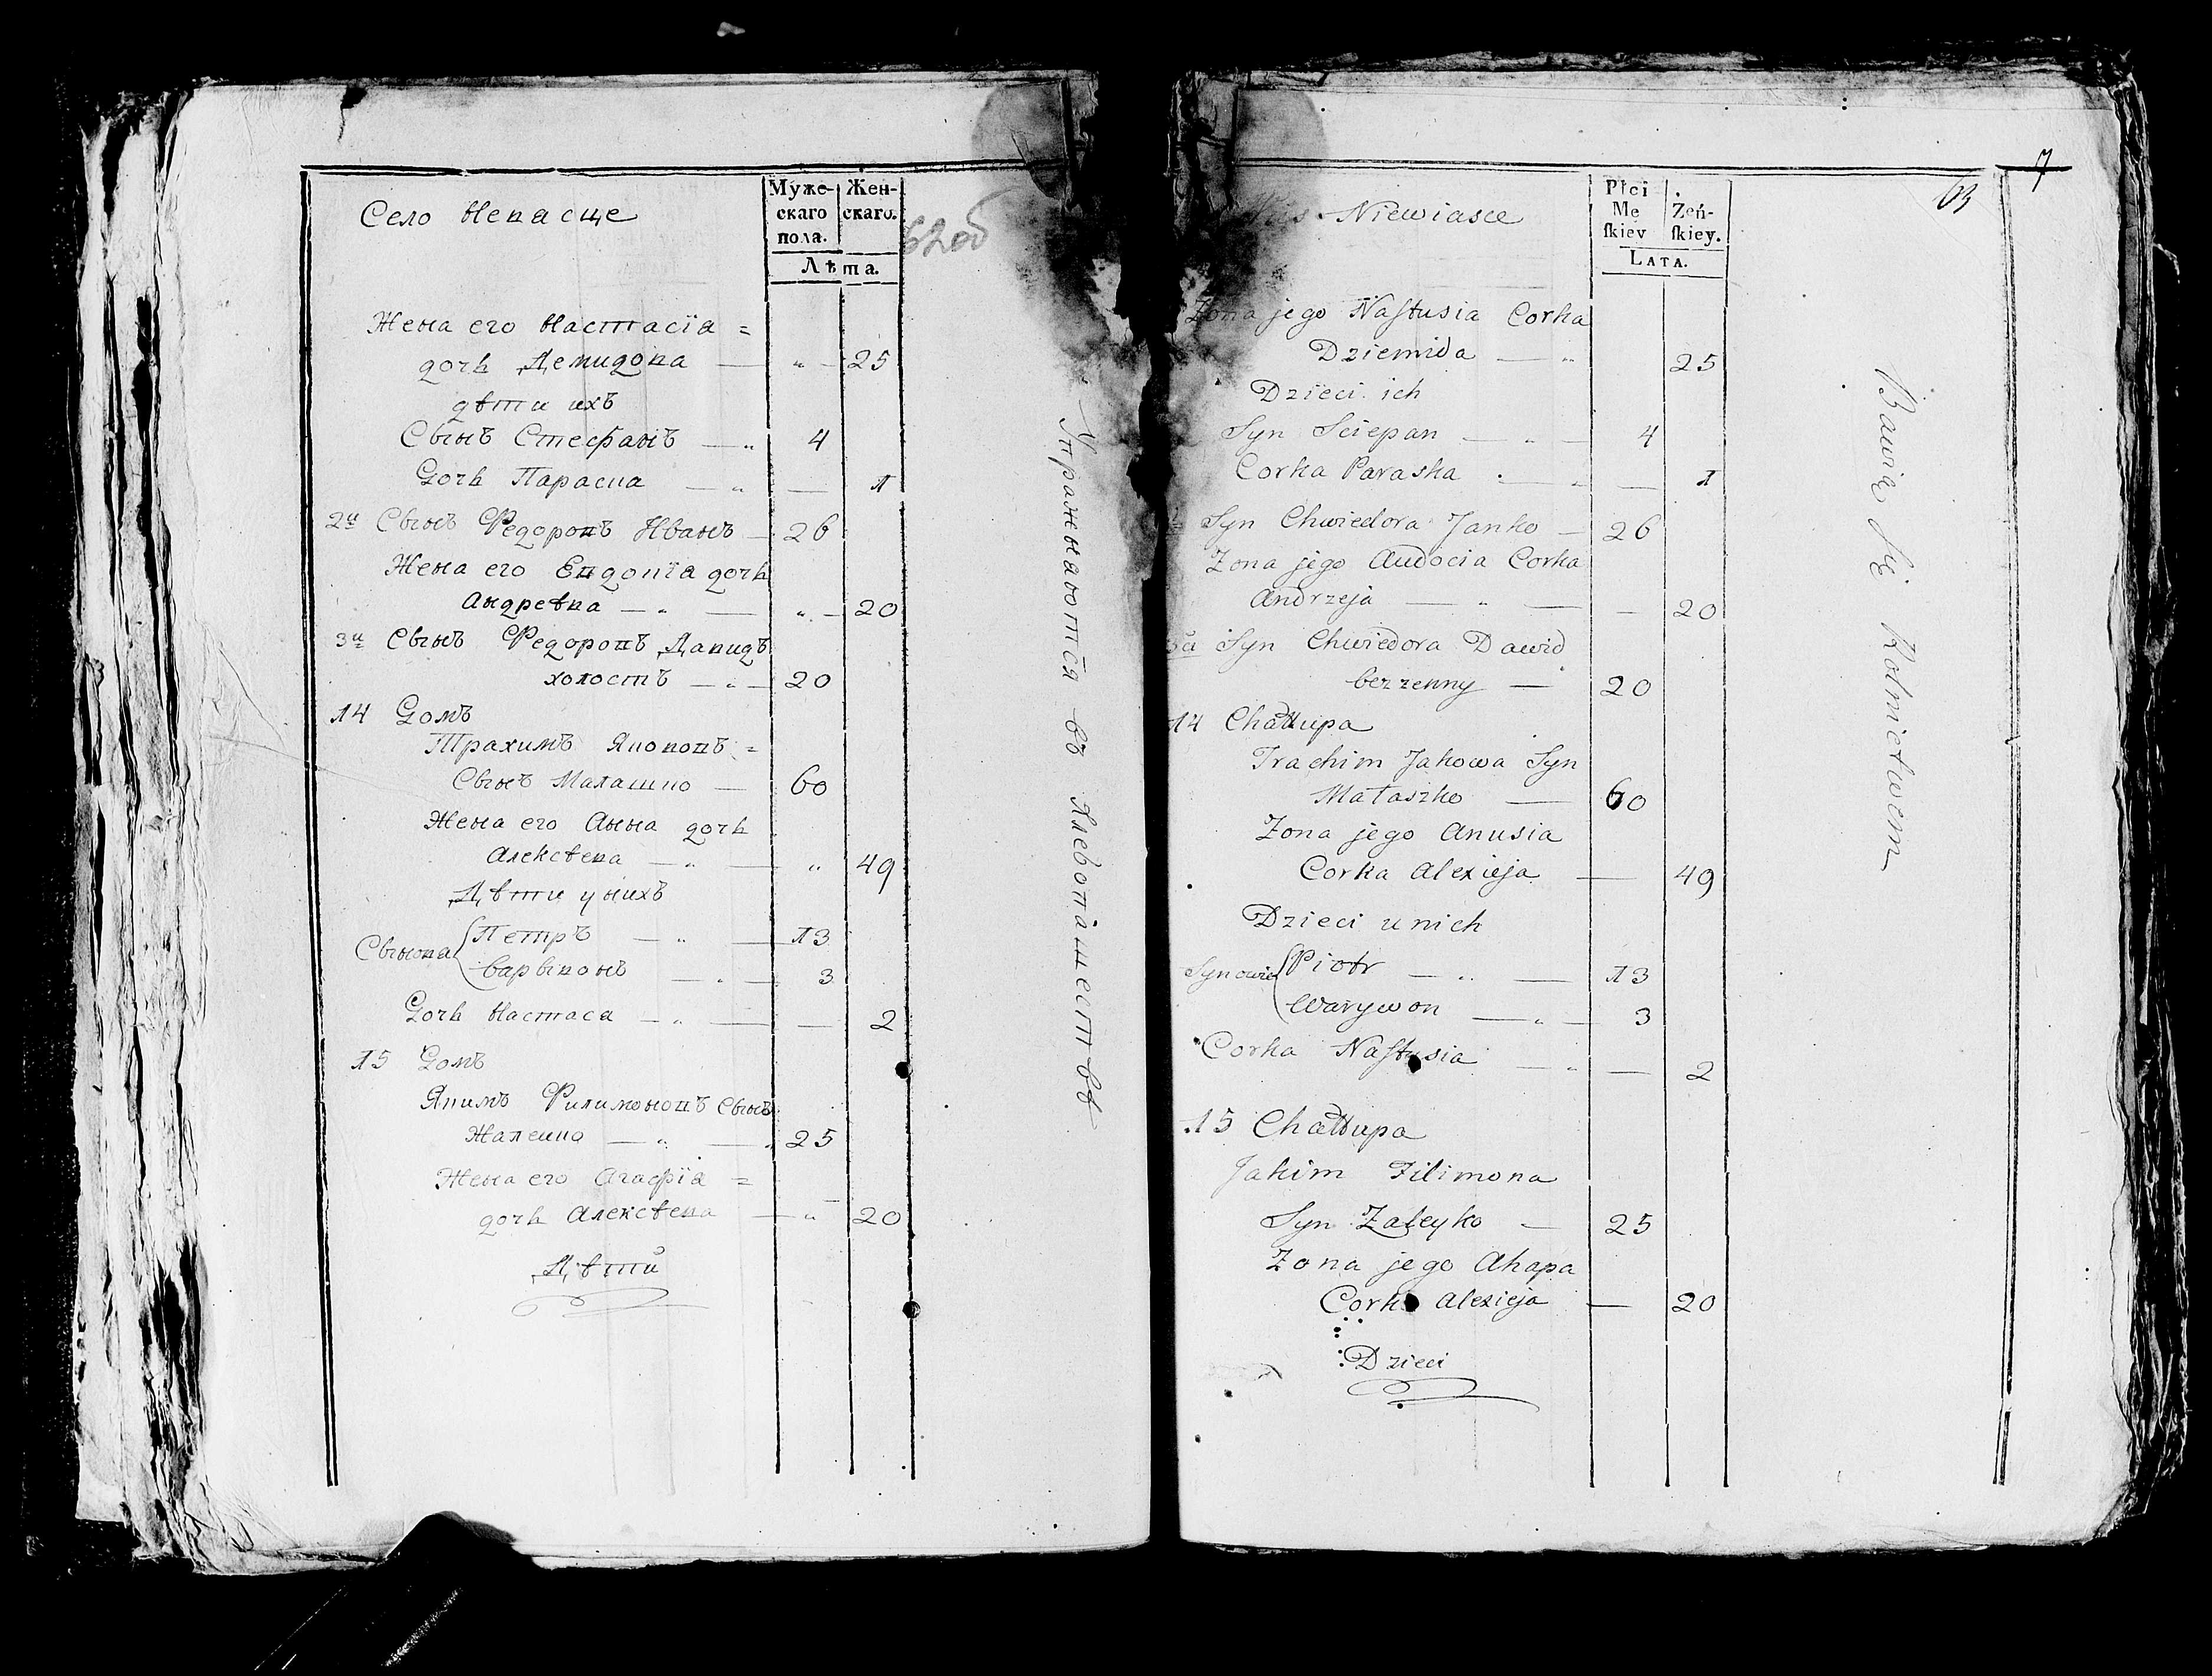 Село Невасще
Муже-
скаго
пола.
Жен-
скаго.
Лѣта.
62об
Жена его Настасїа =
дочь Демидова — „ — 25
дѣти ихъ
Сынъ Стефанъ — „ 4
Дочь Параска — „ — 1
2й Сынъ Федоровъ Иванъ — 26
Жена его Евдокїа дочь
Андреѣва — „ — „ — 20
3й Сынъ Федоровъ Давидъ
холостъ — „ — 20
14 Домъ
Трахимъ Якововъ =
Сынъ Малашко — 60
Жена его Анна дочь
Алексѣева — „ — „ 49
Дѣти у нихъ
Сынова { Петръ — „ — 13
Варывонъ — „ — 3
Дочь Настаса — „ — — 2
15 Домъ
Якимъ Филимоновъ Сынъ
Жалейко — „ — 25
Жена его Агафїа =
дочь Алексѣева — „ 20
Дѣти
Упражнаются въ Хлебопашествѣ
7
63
Niewiasce
Płci
Mę
ſkiey
Żeń-
ſkiey.
Lata.
Zona jego Naſtusia Corka
Dziemida — „ 25
Dzieci ich
Syn Sciepan — „ — 4
Corka Paraska — „ — 1
Syn Chwiedora Janko — 26
Zona jego Audocia Corka
Andrzeja — „ — — 20
3й Syn Chwiedora Dawid
bezzenny — 20
14 Chałłupa
Trachim Jakowa Syn
Małaszko — 60
Zona jego Anusia
Corka Alexieja — 49
Dzieci u nich
Synowie { Piotr — „ — 13
Warywon — „ — 3
Corka Naſtusia — „ — 2
15 Chałłupa
Jakim Filimona
Syn Załeyko — 25
Zona jego Ahapa
Corka Alexieja — 20
Dzieci
Bawią ſię Rolnictwem